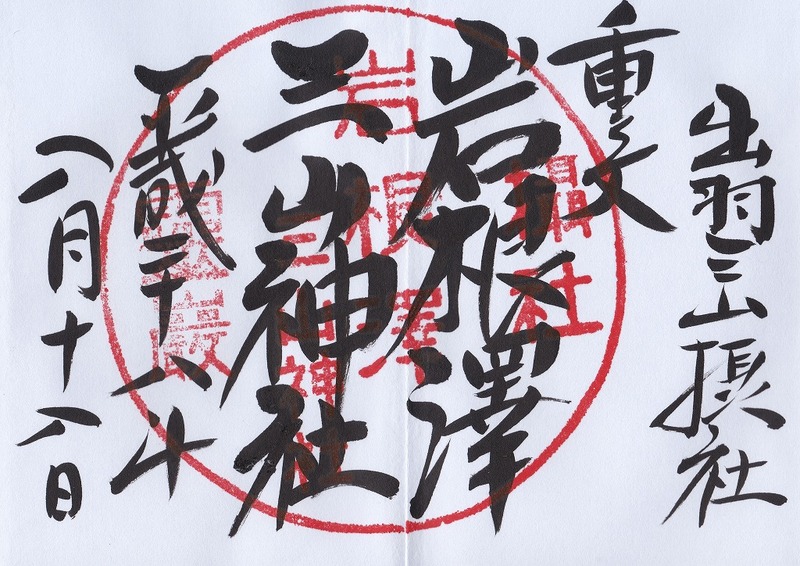 出羽三山摂社
重文
岩根澤
三山神社
平成二十八年
八月十八日
岩根澤
三山神社